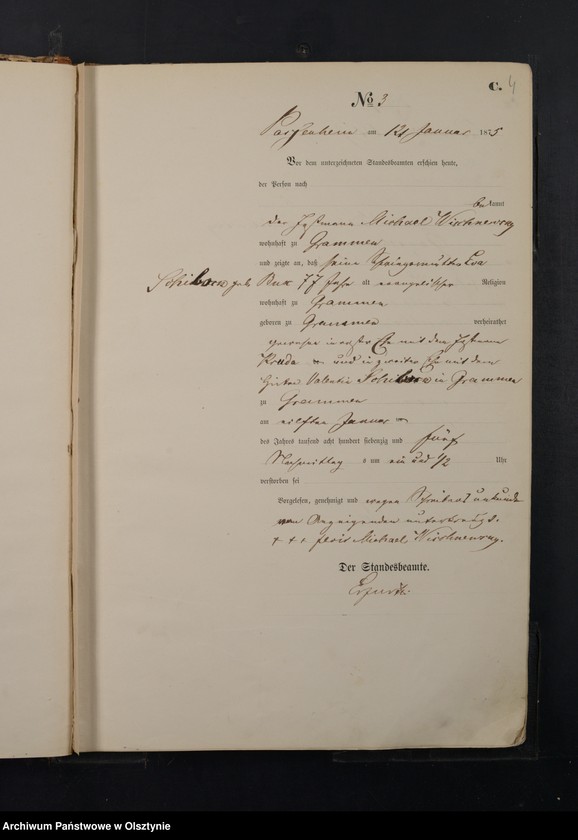 C. 4
No 3
Passenheim am 12 Januar 1875
Vor dem unterzeichneten Standesbeamten erschien heute,
der Person nach
bekannt
der Michael
wohnhaft zu Grammen
und zeigte an, daß seine Schwiegermutter Eva
geb. 77 Jahr alt evangelischer Religion
wohnhaft zu Grammen
geboren zu Grammen verheirathet
gewesen in erster Ehe mit dem
und in zweiter Ehe mit dem
Valentin in Grammen
zu Grammen
am eilften Januar
des Jahres tausend acht hundert siebenzig und fünf
Nachmittag s um ein und 1/2 Uhr
verstorben sei
Vorgelesen, genehmigt und wegen Schreibens unkunde
vom Anzeigenden unterkreuzt.
+ + + Michael
Der Standesbeamte.
Archiwum Państwowe w Olsztynie